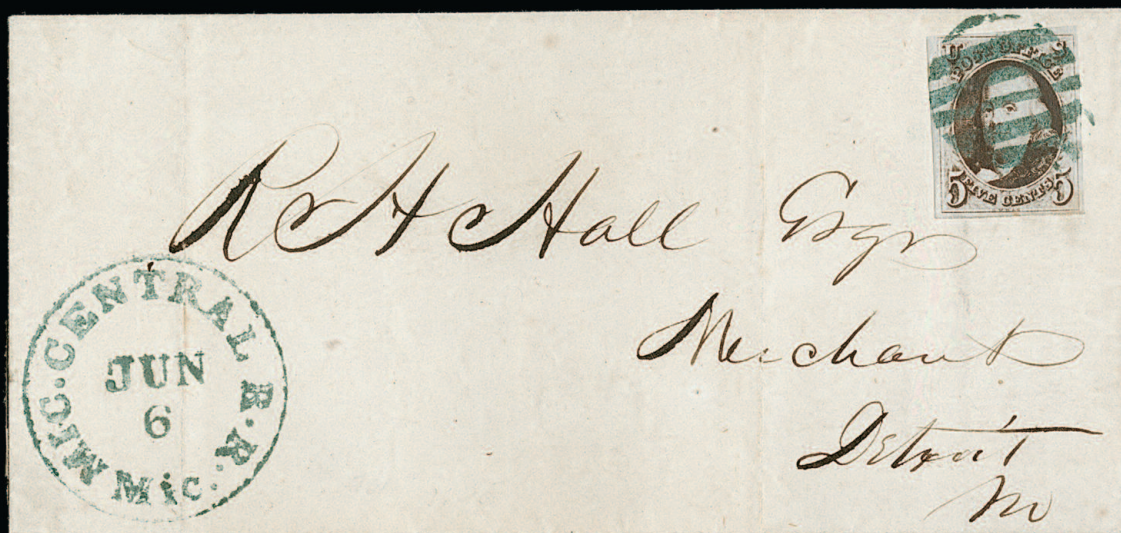 POST OFFICE
5 5
FIVE CENTS
R H Hall Esqr
Merchant
Detroit
MIC. CENTRAL R.R.
JUN
6
Mic.